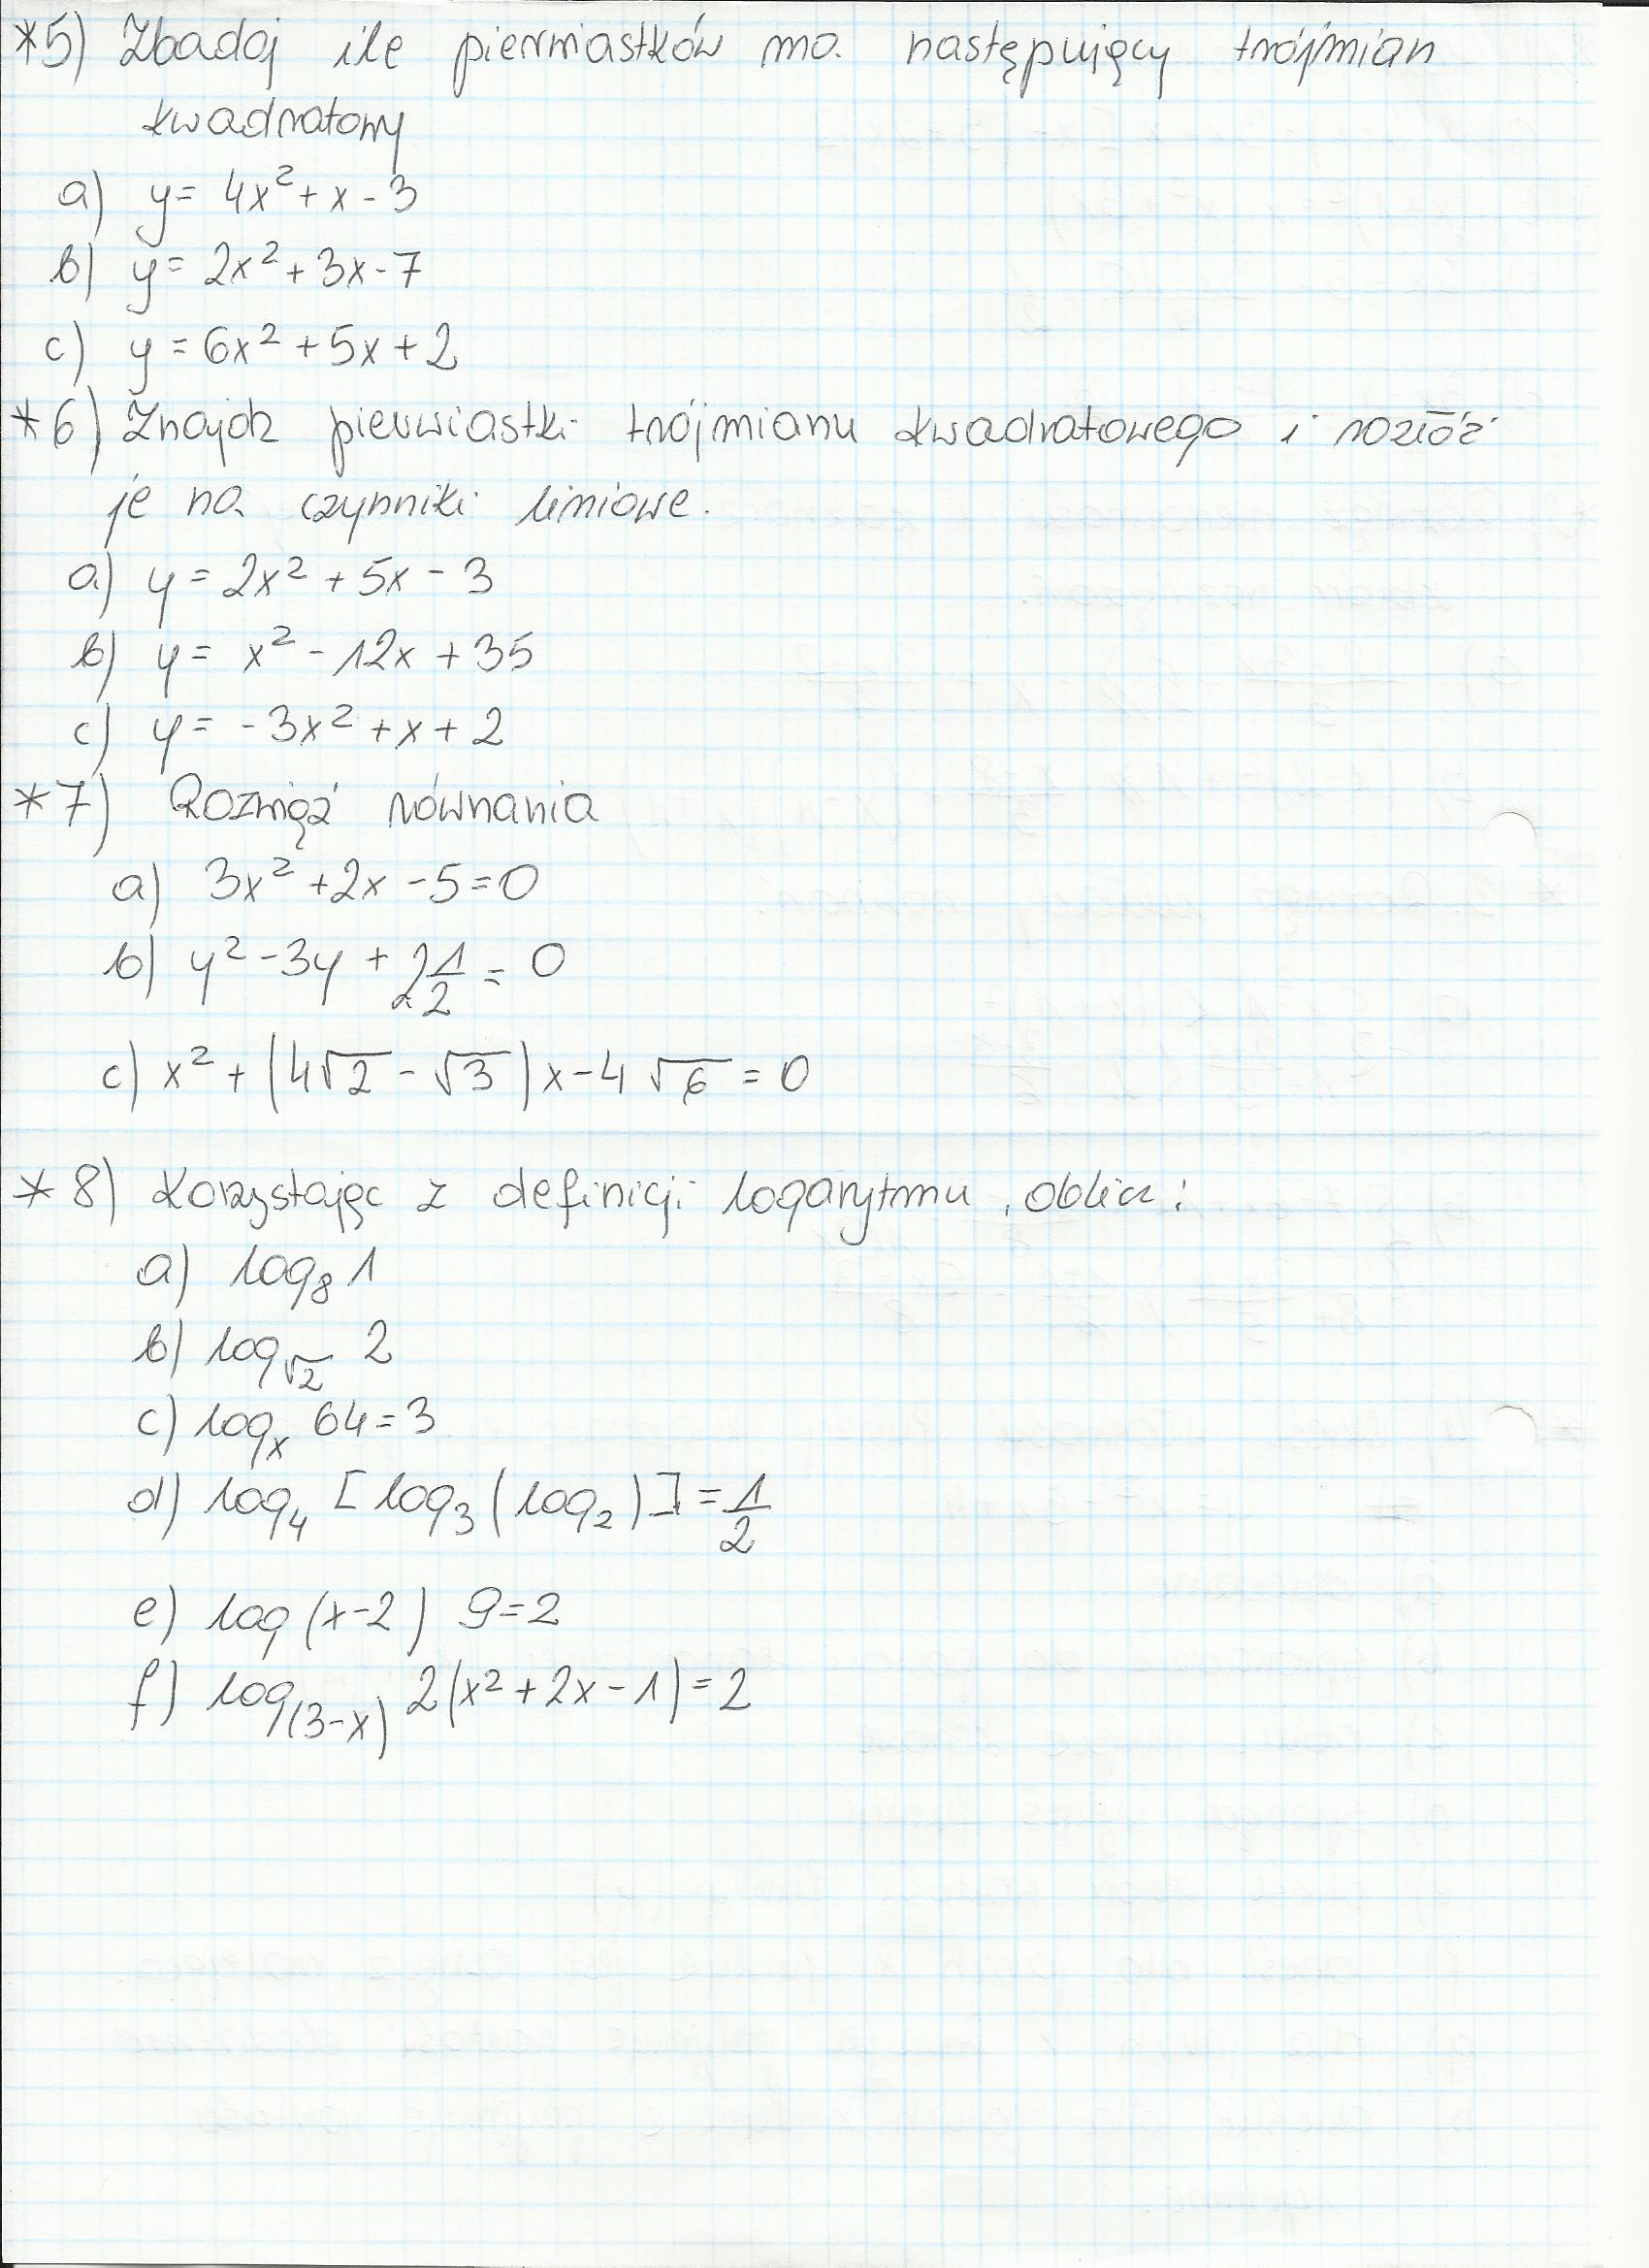 *5) Zbadaj ile pierwiastków ma następujący trójmian
kwadratowy
a) y = 4x² + x - 3
b) y = 2x² + 3x - 7
c) y = 6x² + 5x + 2
*6) Znajdz pierwiastki trójmianu kwadratowego i rozłóż
je na czynniki liniowe.
a) y = 2x² + 5x - 3
b) y = x² - 12x + 35
c) y = -3x² + x + 2
*7) Rozwiąż równania
a) 3x² + 2x - 5 = 0
b) y² - 3y + 2 1/2 = 0
c) x² + (4√2 - √3)x - 4√6 = 0
*8) Korzystając z definicji logarytmu, oblicz:
a) log₈ 1
b) log_√2 2
c) logₓ 64 = 3
d) log₄ [log₃ (log₂)] = 1/2
e) log (x-2) 9 = 2
f) log₍₃₋ₓ₎ 2(x² + 2x - 1) = 2